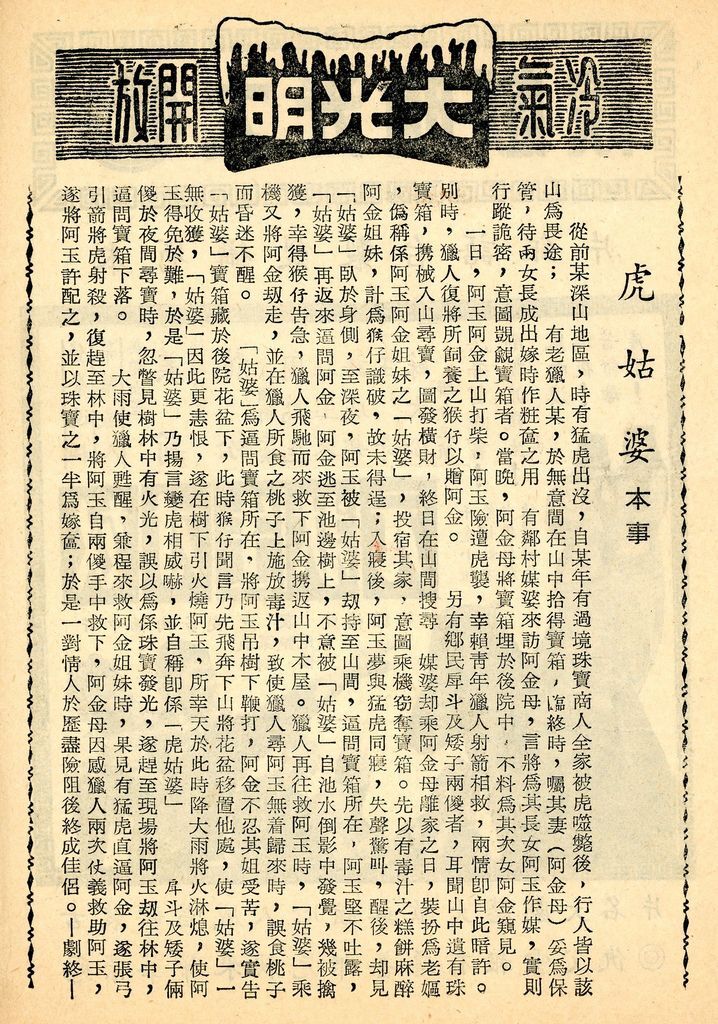 冷氣
大光明
開放
虎姑婆本事
從前某深山地區，時有猛虎出沒，自某年有過境珠寶商人全家被虎噬斃後，行人皆以該
山爲畏途；　有老獵人某，於無意間在山中拾得寶箱，臨終時，囑其妻（阿金母）妥爲保
管，待兩女長成出嫁時作粧奩之用　有鄰村媒婆來訪阿金母，言將爲其長女阿玉作媒，實則
行蹤詭密，意圖覬覦寶箱者。當晚，阿金母將寶箱埋於後院中，不料爲其次女阿金窺見。
一日，阿玉阿金上山打柴，阿玉險遭虎襲，幸賴靑年獵人射箭相救，兩情卽自此暗許。
別時，獵人復將所飼養之猴仔以贈阿金。　另有鄉民戽斗及矮子兩儍者，耳聞山中遺有珠
寶箱，携械入山尋寶，圖發橫財，終日在山間搜尋　媒婆却乘阿金母離家之日，裝扮爲老嫗
，僞稱係阿玉阿金姐妹之「姑婆」，投宿其家，意圖乘機窃奪寶箱。先以有毒汁之糕餅麻醉
阿金姐妹，計爲猴仔識破，故未得逞；入寢後，阿玉夢與猛虎同寢，失聲驚叫，醒後，却見
「姑婆」臥於身側，至深夜，阿玉被「姑婆」刼持至山間，逼問寶箱所在，阿玉堅不吐露，
「姑婆」再返來逼問阿金，阿金逃至池邊樹上，不意被「姑婆」自池水倒影中發覺，幾被擒
獲，幸得猴仔告急，獵人飛馳而來救下阿金携返山中木屋。獵人再往救阿玉時，「姑婆」乘
機又將阿金刼走，並在獵人所食之桃子上施放毒汁，致使獵人尋阿玉無着歸來時，誤食桃子
而昏迷不醒。　「姑婆」爲逼問寶箱所在，將阿玉吊樹下鞭打，阿金不忍其姐受苦，遂實告
「姑婆」寶箱藏於後院花盆下，此時猴仔聞言乃先飛奔下山將花盆移置他處，使「姑婆」一
無收獲，「姑婆」因此更恚恨，遂在樹下引火燒阿玉，所幸天於此時降大雨將火淋熄，使阿
玉得免於難，於是「姑婆」乃揚言變虎相威嚇，並自稱卽係「虎姑婆」　戽斗及矮子倆
儍於夜間尋寶時，忽瞥見樹林中有火光，誤以爲係珠寶發光，遂趕至現場將阿玉刼往林中，
逼問寶箱下落。　大雨使獵人甦醒，兼程來救阿金姐妹時，果見有猛虎直逼阿金，遂張弓
引箭將虎射殺，復趕至林中，將阿玉自兩儍手中救下，阿金母因感獵人兩次仗義救助阿玉，
遂將阿玉許配之，並以珠寶之一半爲嫁奩；於是一對情人於歷盡險阻後終成佳侶。—劇終—